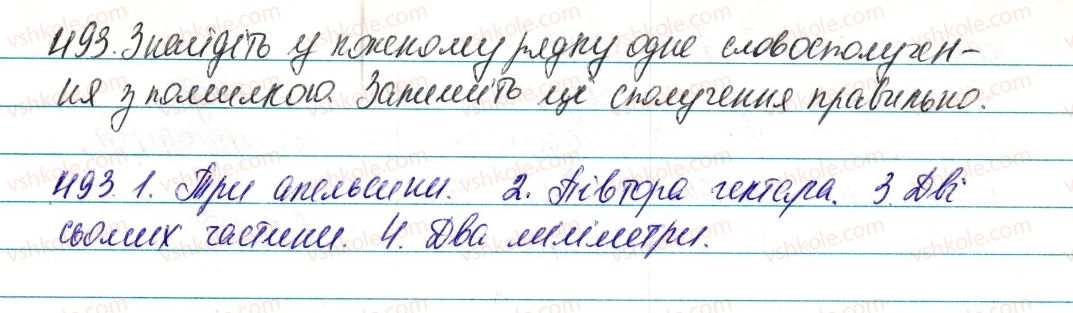 493. Знайдіть у кожному рядку одне словосполучен-
ня з помилкою. Запишіть ці сполучення правильно.
493. 1. Три апельсини. 2. Півтора гектара. 3. Дві
сьомих частини. 4. Два міліметри.